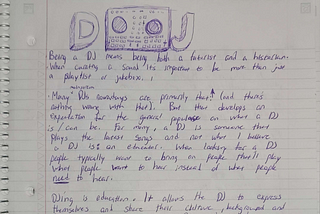 DJ
Being a DJ means being both a futurist and a historian.
When curating a sound its important to be more than just
a playlist or jukebox.
Many DJs nowadays are primarily that (and theres
nothing wrong with that). But that develops an
expectation for the general populace on what a DJ
is / can be. For many, a DJ is someone that
plays the latest songs and
a DJ is: an educator. When looking for a DJ
people typically want to bring on people that'll play
what people want to hear instead of what people
need to hear.
DJing is education. It allows the DJ to express
themselves and share their culture, background and